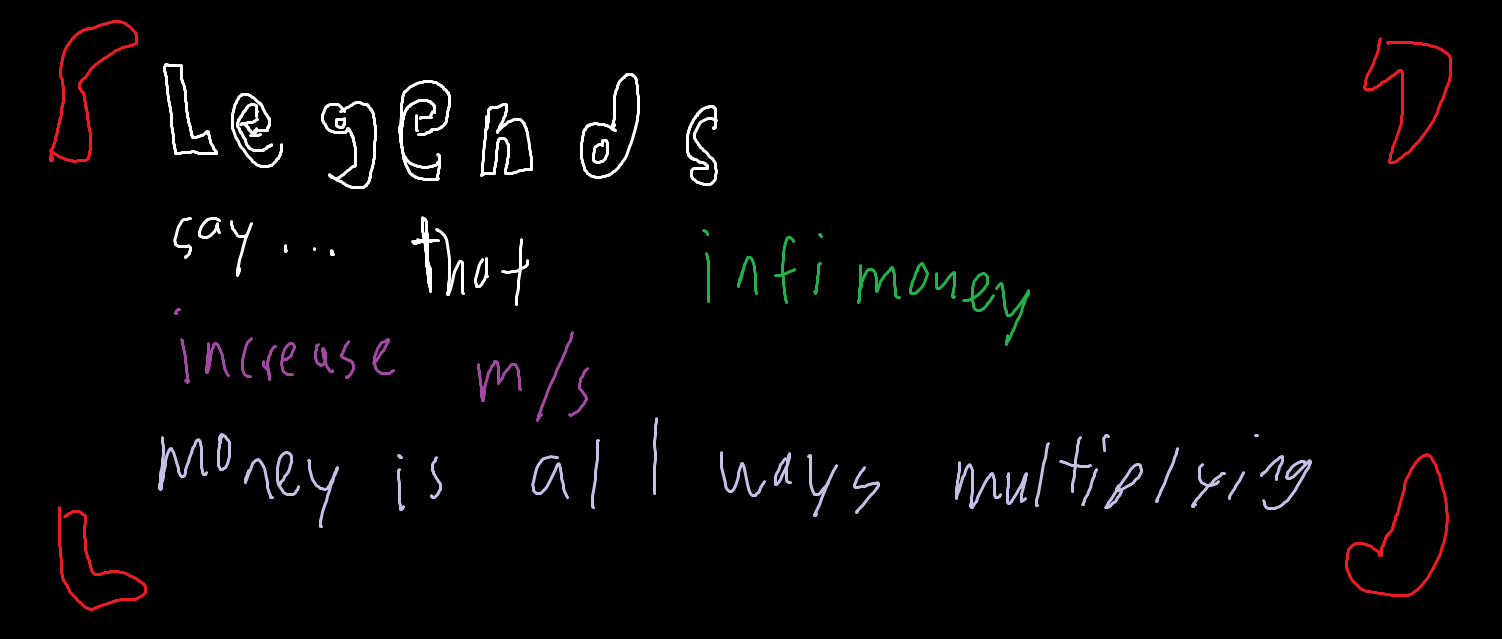 Legends
say... that infimoney
increase m/s
money is all ways multiplying